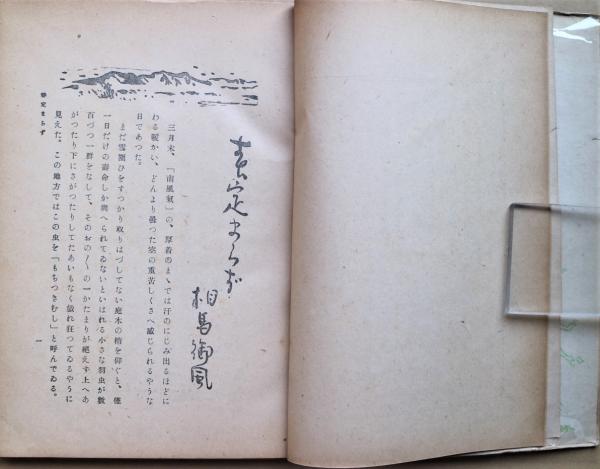 春定まらず
相馬御風
三月末、「南風気」の、厚着のまゝでは汗のにじみ出るほどに
わる暖かい、どんより曇つた空の重苦しくさへ感じられるやうな
日であつた。
まだ雪圍ひをすつかり取りはづしてない庭木の梢を仰ぐと、僅
一日だけの壽命しか與へられてゐないといはれる小さな羽虫が数
百づつ一群をなして、そのおの〳〵の一かたまりが絶えず上へあ
がつたり下にさがつたりしてたあいもなく戯れ狂つてゐるやうに
見えた。この地方ではこの虫を「もちつきむし」と呼んでゐる。
春定まらず
一